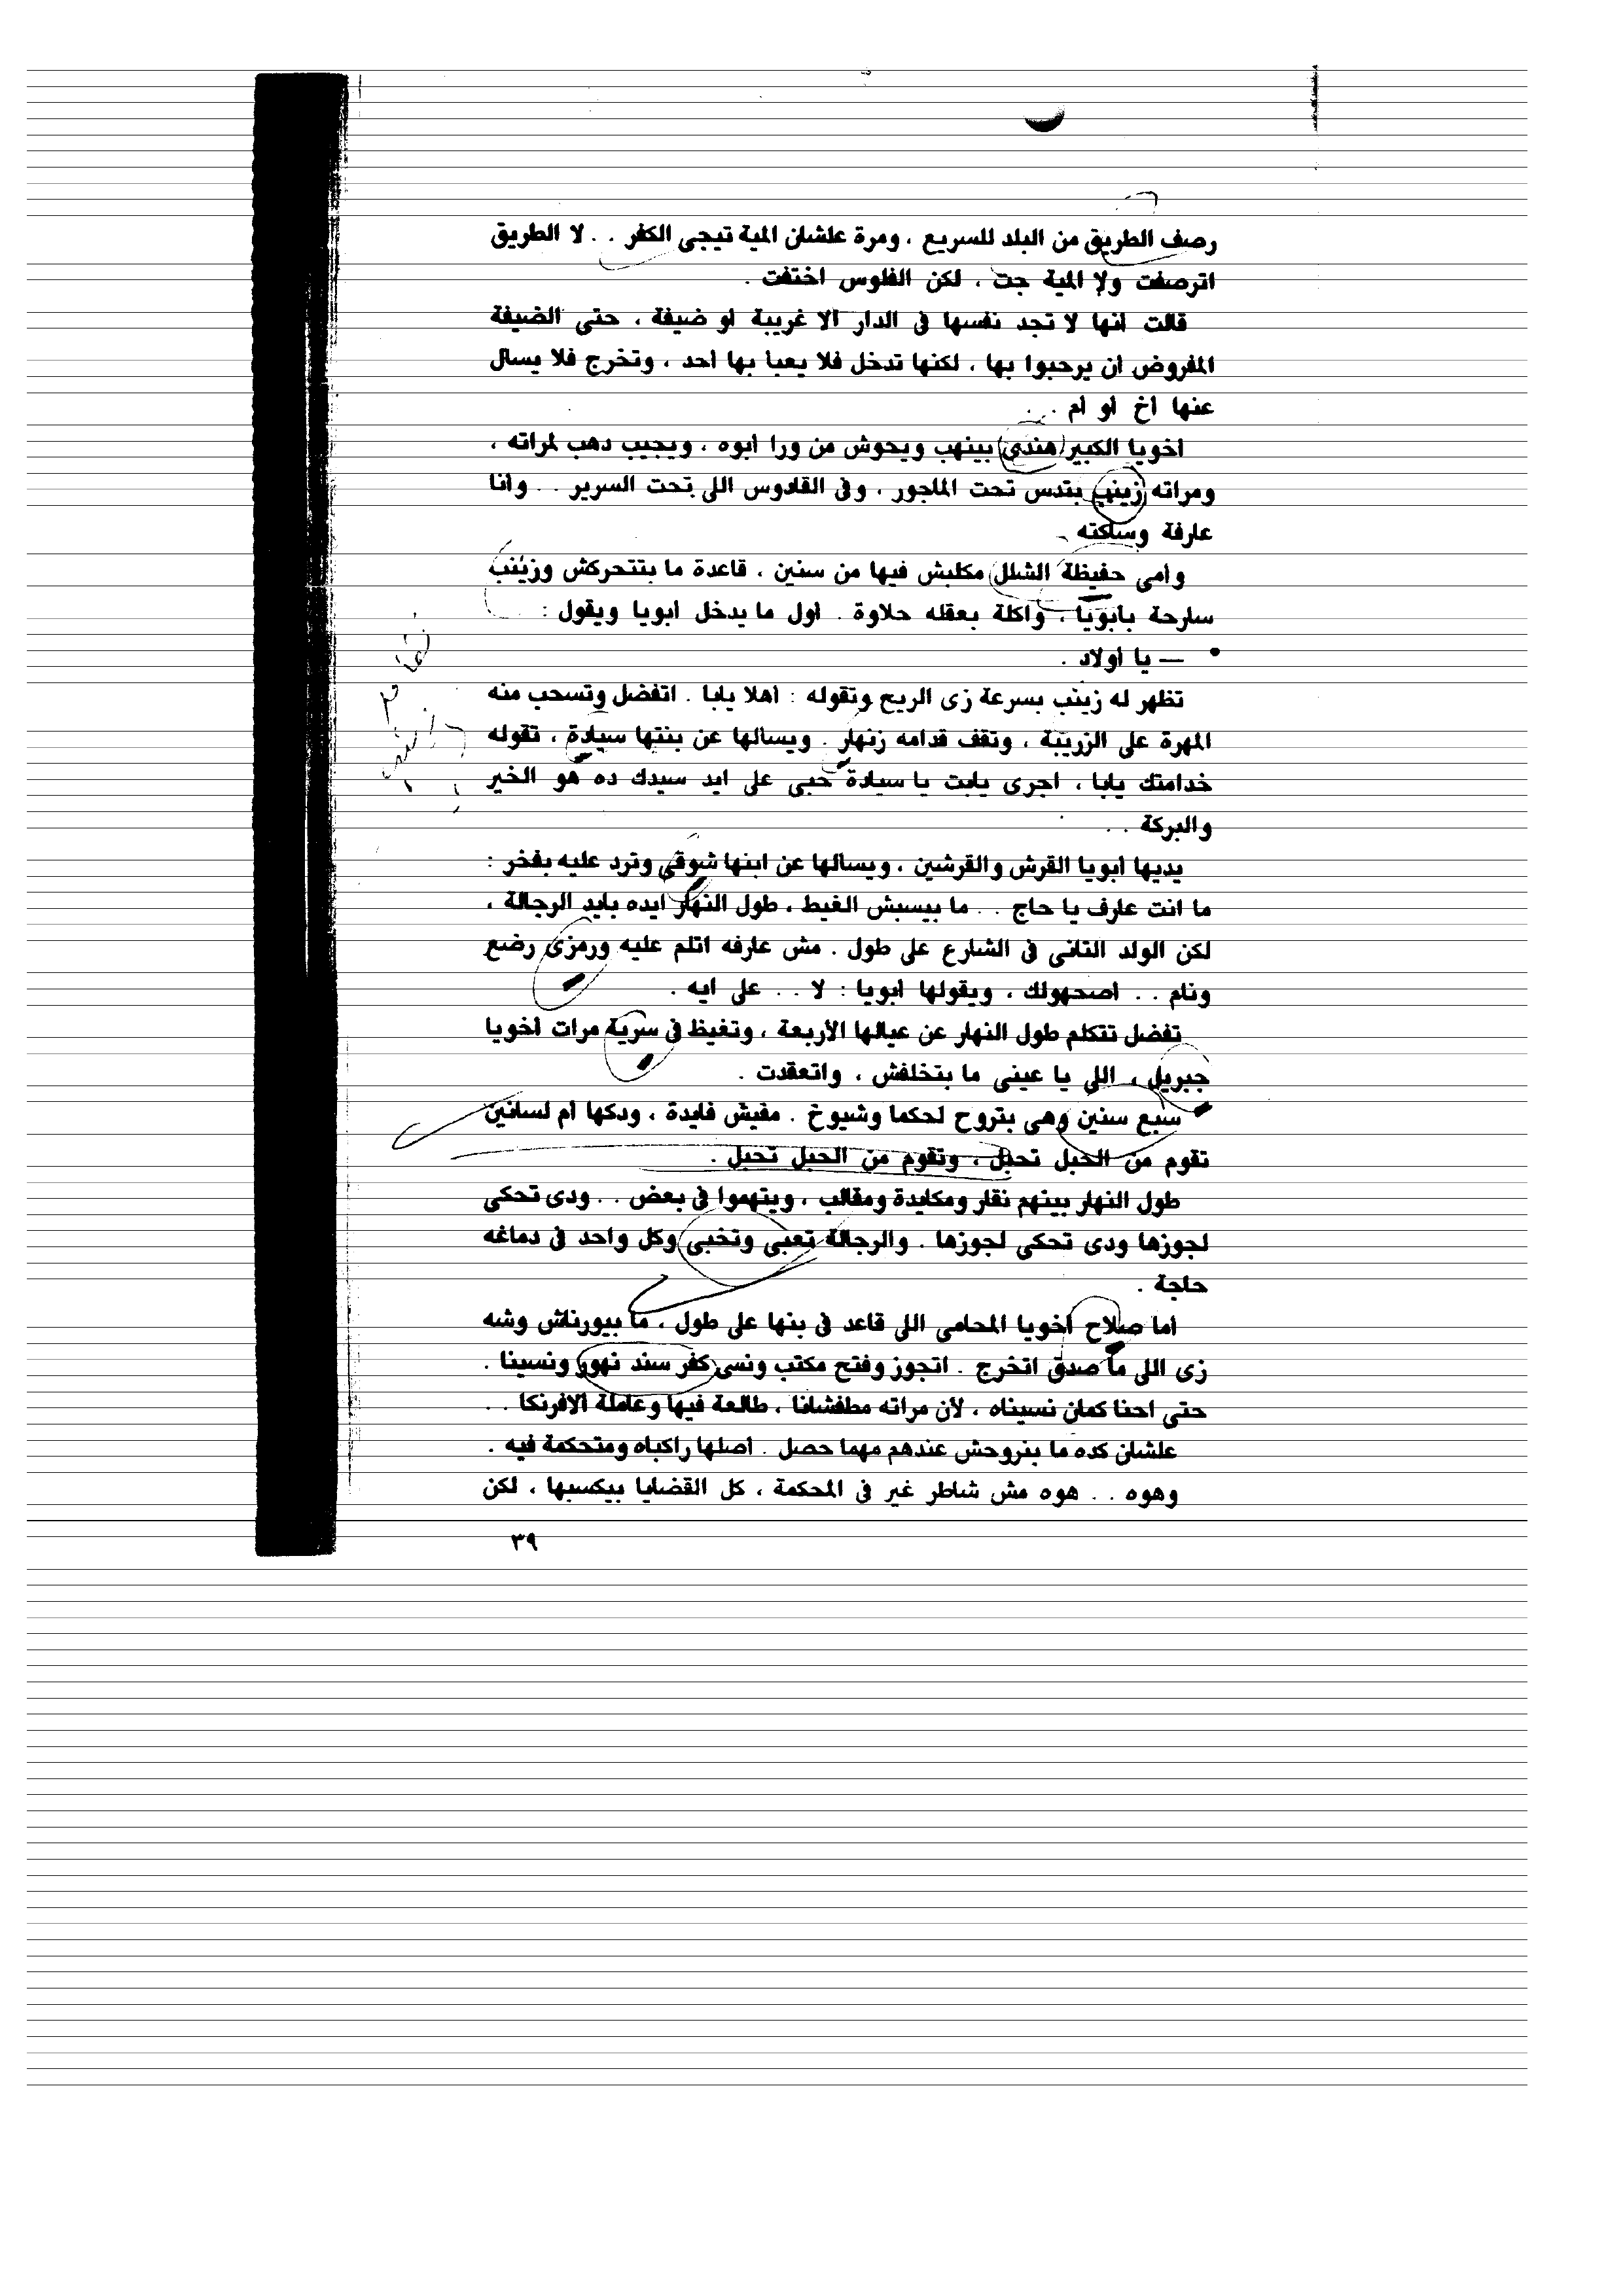 رصف الطريق من البلد للسريع ، ومرة علشان المية تيجى الكفر . . لا الطريق
اترصفت ولا المية جت ، لكن الفلوس اختفت .
قالت انها لا تجد نفسها فى الدار الا غريبة او ضيفة ، حتى الضيفة
المفروض ان يرحبوا بها ، لكنها تدخل فلا يعبا بها احد ، وتخرج فلا يسال
عنها اخ او ام . .
اخويا الكبير هندى بينهب ويحوش من ورا ابوه ، ويجيب دهب لمراته ،
ومراته زينب بتدس تحت الماجور ، وفى القادوس اللى تحت السرير . . وانا
عارفة وساكته
وامى حفيظة الشلل مكلبش فيها من سنين ، قاعدة ما بتتحركش وزينب
سارحة بابويا ، واكلة بعقله حلاوة . اول ما يدخل ابويا ويقول :
— يا اولاد .
تظهر له زينب بسرعة زى الريح وتقوله : اهلا يابا . اتفضل وتسحب منه
المهرة على الزريبة ، وتقف قدامه زنهار . ويسالها عن بنتها سيادة ، تقوله
خدامتك يابا ، اجرى يابت يا سيادة حبى على ايد سيدك ده هو الخير
والبركة . .
يديها ابويا القرش والقرشين ، ويسالها عن ابنها شوقى وترد عليه بفخر :
ما انت عارف يا حاج . . ما بيسبش الغيط ، طول النهار ايده بايد الرجالة ،
لكن الولد التانى فى الشارع على طول . مش عارفه اتلم عليه ورمزى رضع
ونام . . اصحهولك ، ويقولها ابويا : لا . . على ايه .
تفضل تتكلم طول النهار عن عيالها الأربعة ، وتغيظ فى سرية مرات اخويا
جبريل ، اللى يا عينى ما بتخلفش ، واتعقدت .
سبع سنين وهى بتروح لحكما وشيوخ . مفيش فايدة ، ودكها ام لسانين
تقوم من الحبل تحبل ، وتقوم من الحبل تحبل .
طول النهار بينهم نقار ومكايدة ومقالب ، ويتهموا فى بعض . . ودى تحكى
لجوزها ودى تحكى لجوزها . والرجالة تعبى وتخبى وكل واحد فى دماغه
حاجة .
اما صلاح اخويا المحامى اللى قاعد فى بنها على طول ، ما بيورناش وشه
زى اللى ما صدق اتخرج . اتجوز وفتح مكتب ونسى كفر سند نهور ونسينا .
حتى احنا كمان نسيناه ، لأن مراته مطفشانا ، طالعة فيها وعاملة الافرنكا . .
علشان كده ما بنروحش عندهم مهما حصل . اصلها راكباه ومتحكمة فيه .
وهوه . . هوه مش شاطر غير فى المحكمة ، كل القضايا بيكسبها ، لكن
٣٩